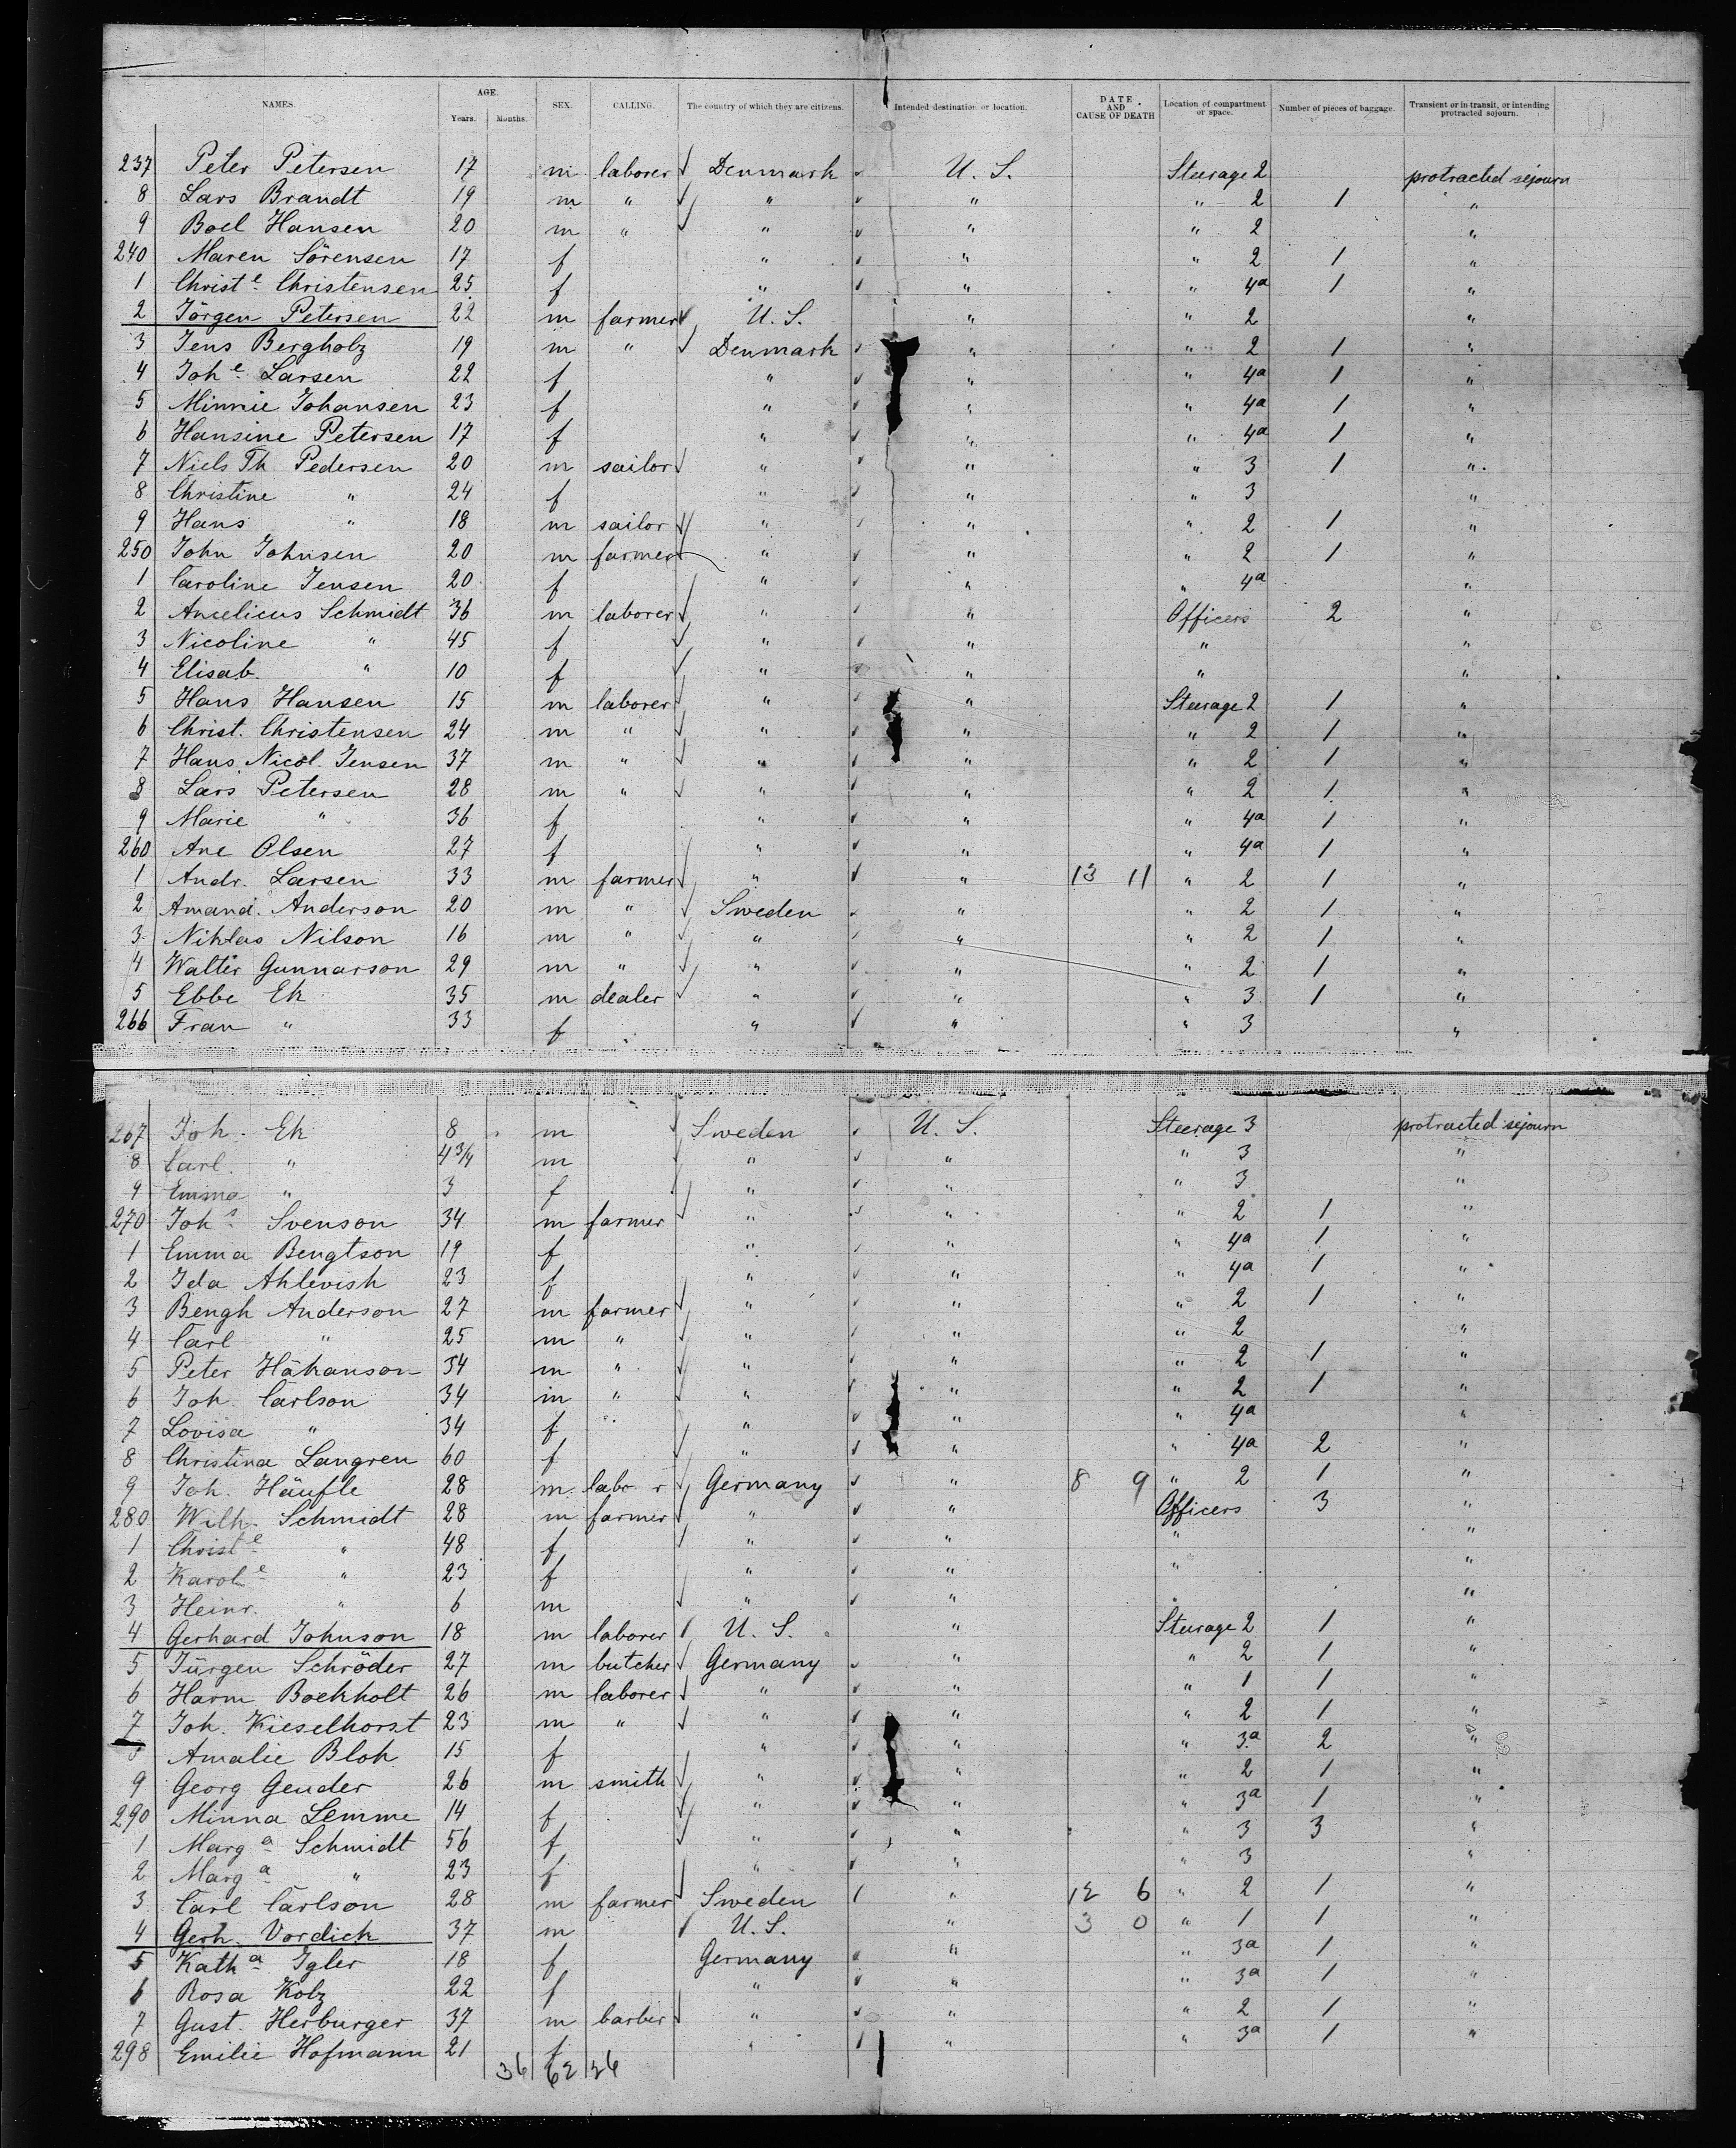 NAMES. AGE. Years. Months. SEX. CALLING. The country of which they are citizens. Intended destination or location. DATE AND CAUSE OF DEATH Location of compartment or space. Number of pieces of baggage. Transient or in transit, or intending protracted sojourn.
237 Peter Petersen 17 m laborer Denmark U. S. Steerage 2 protracted sejourn
8 Lars Brandt 19 m " " " " 2 1 "
9 Boel Hansen 20 m " " " " 2 "
240 Maren Sörensen 17 f " " " 2 1 "
1 Christe Christensen 25 f " " " 4a 1 "
2 Jörgen Petersen 22 m farmer U. S. " " 2 "
3 Jens Bergholz 19 m " Denmark " " 2 1 "
4 Johe Larsen 22 f " " " 4a 1 "
5 Minnie Johansen 23 f " " " 4a 1 "
6 Hansine Petersen 17 f " " " 4a 1 "
7 Niels Th. Pedersen 20 m sailor " " " 3 1 "
8 Christine " 24 f " " " 3 "
9 Hans " 18 m sailor " " " 2 1 "
250 John Johnsen 20 m farmer " " " 2 1 "
1 Caroline Jensen 20 f " " " 4a "
2 Ancelicus Schmidt 36 m laborer " " Officers 2 "
3 Nicoline " 45 f " " " "
4 Elisab. " 10 f " " " "
5 Hans Hansen 15 m laborer " " Steerage 2 1 "
6 Christ. Christensen 24 m " " " " 2 1 "
7 Hans Nicol. Jensen 37 m " " " " 2 1 "
8 Lars Petersen 28 m " " " " 2 1 "
9 Marie " 36 f " " " 4a 1 "
260 Ane Olsen 27 f " " " 4a 1 "
1 Andr. Larsen 33 m farmer " " 13 11 " 2 1 "
2 Amand. Anderson 20 m " Sweden " " 2 1 "
3 Niklas Nilson 16 m " " " " 2 1 "
4 Walter Gunnarson 29 m " " " " 2 1 "
5 Ebbe Ek 35 m dealer " " " 3 1 "
266 Frau " 33 f " " " 3 "
267 Joh. Ek 8 m Sweden U. S. Steerage 3 protracted sejourn
8 Carl " 4 3/4 m " " " 3 "
9 Emma " 3 f " " " 3 "
270 Johs Svenson 34 m farmer " " " 2 1 "
1 Emma Bengtson 19 f " " " 4a 1 "
2 Ida Ahlevish 23 f " " " 4a 1 "
3 Bengh Anderson 27 m farmer " " " 2 1 "
4 Carl " 25 m " " " " 2 "
5 Peter Håkanson 34 m " " " " 2 1 "
6 Joh. Carlson 34 m " " " " 2 1 "
7 Lovisa " 34 f " " " 4a "
8 Christina Langren 60 f " " " 4a 2 "
9 Joh. Häufle 28 m labo r Germany " 8 9 " 2 1 "
280 Wilh. Schmidt 28 m farmer " " Officers 3 "
1 Christe " 48 f " " " "
2 Karole " 23 f " " " "
3 Heinr. " 6 m " " "
4 Gerhard Johnson 18 m laborer U. S. " Steerage 2 1 "
5 Jürgen Schröder 27 m butcher Germany " " 2 1 "
6 Harm Boekholt 26 m laborer " " " 1 1 "
7 Joh. Kieselhorst 23 m " " " " 2 1 "
Amalie Bloh 15 f " " " 3a 2 "
9 Georg Geuder 26 m smith " " " 2 1 "
290 Minna Lemme 14 f " " " 3a 1 "
1 Marga Schmidt 56 f " " " 3 3 "
2 Marga " 23 f " " " 3 "
3 Carl Carlson 28 m farmer Sweden " 12 6 " 2 1 "
4 Gerh. Vordick 37 m U. S. " 3 0 " 1 1 "
5 Katha Igler 18 f Germany " " 3a 1 "
6 Rosa Kolz 22 f " " " 3a 1 "
7 Gust. Herburger 37 m barber " " " 2 1 "
298 Emilie Hofmann 21 f " " " 3a 1 "
36 62 36